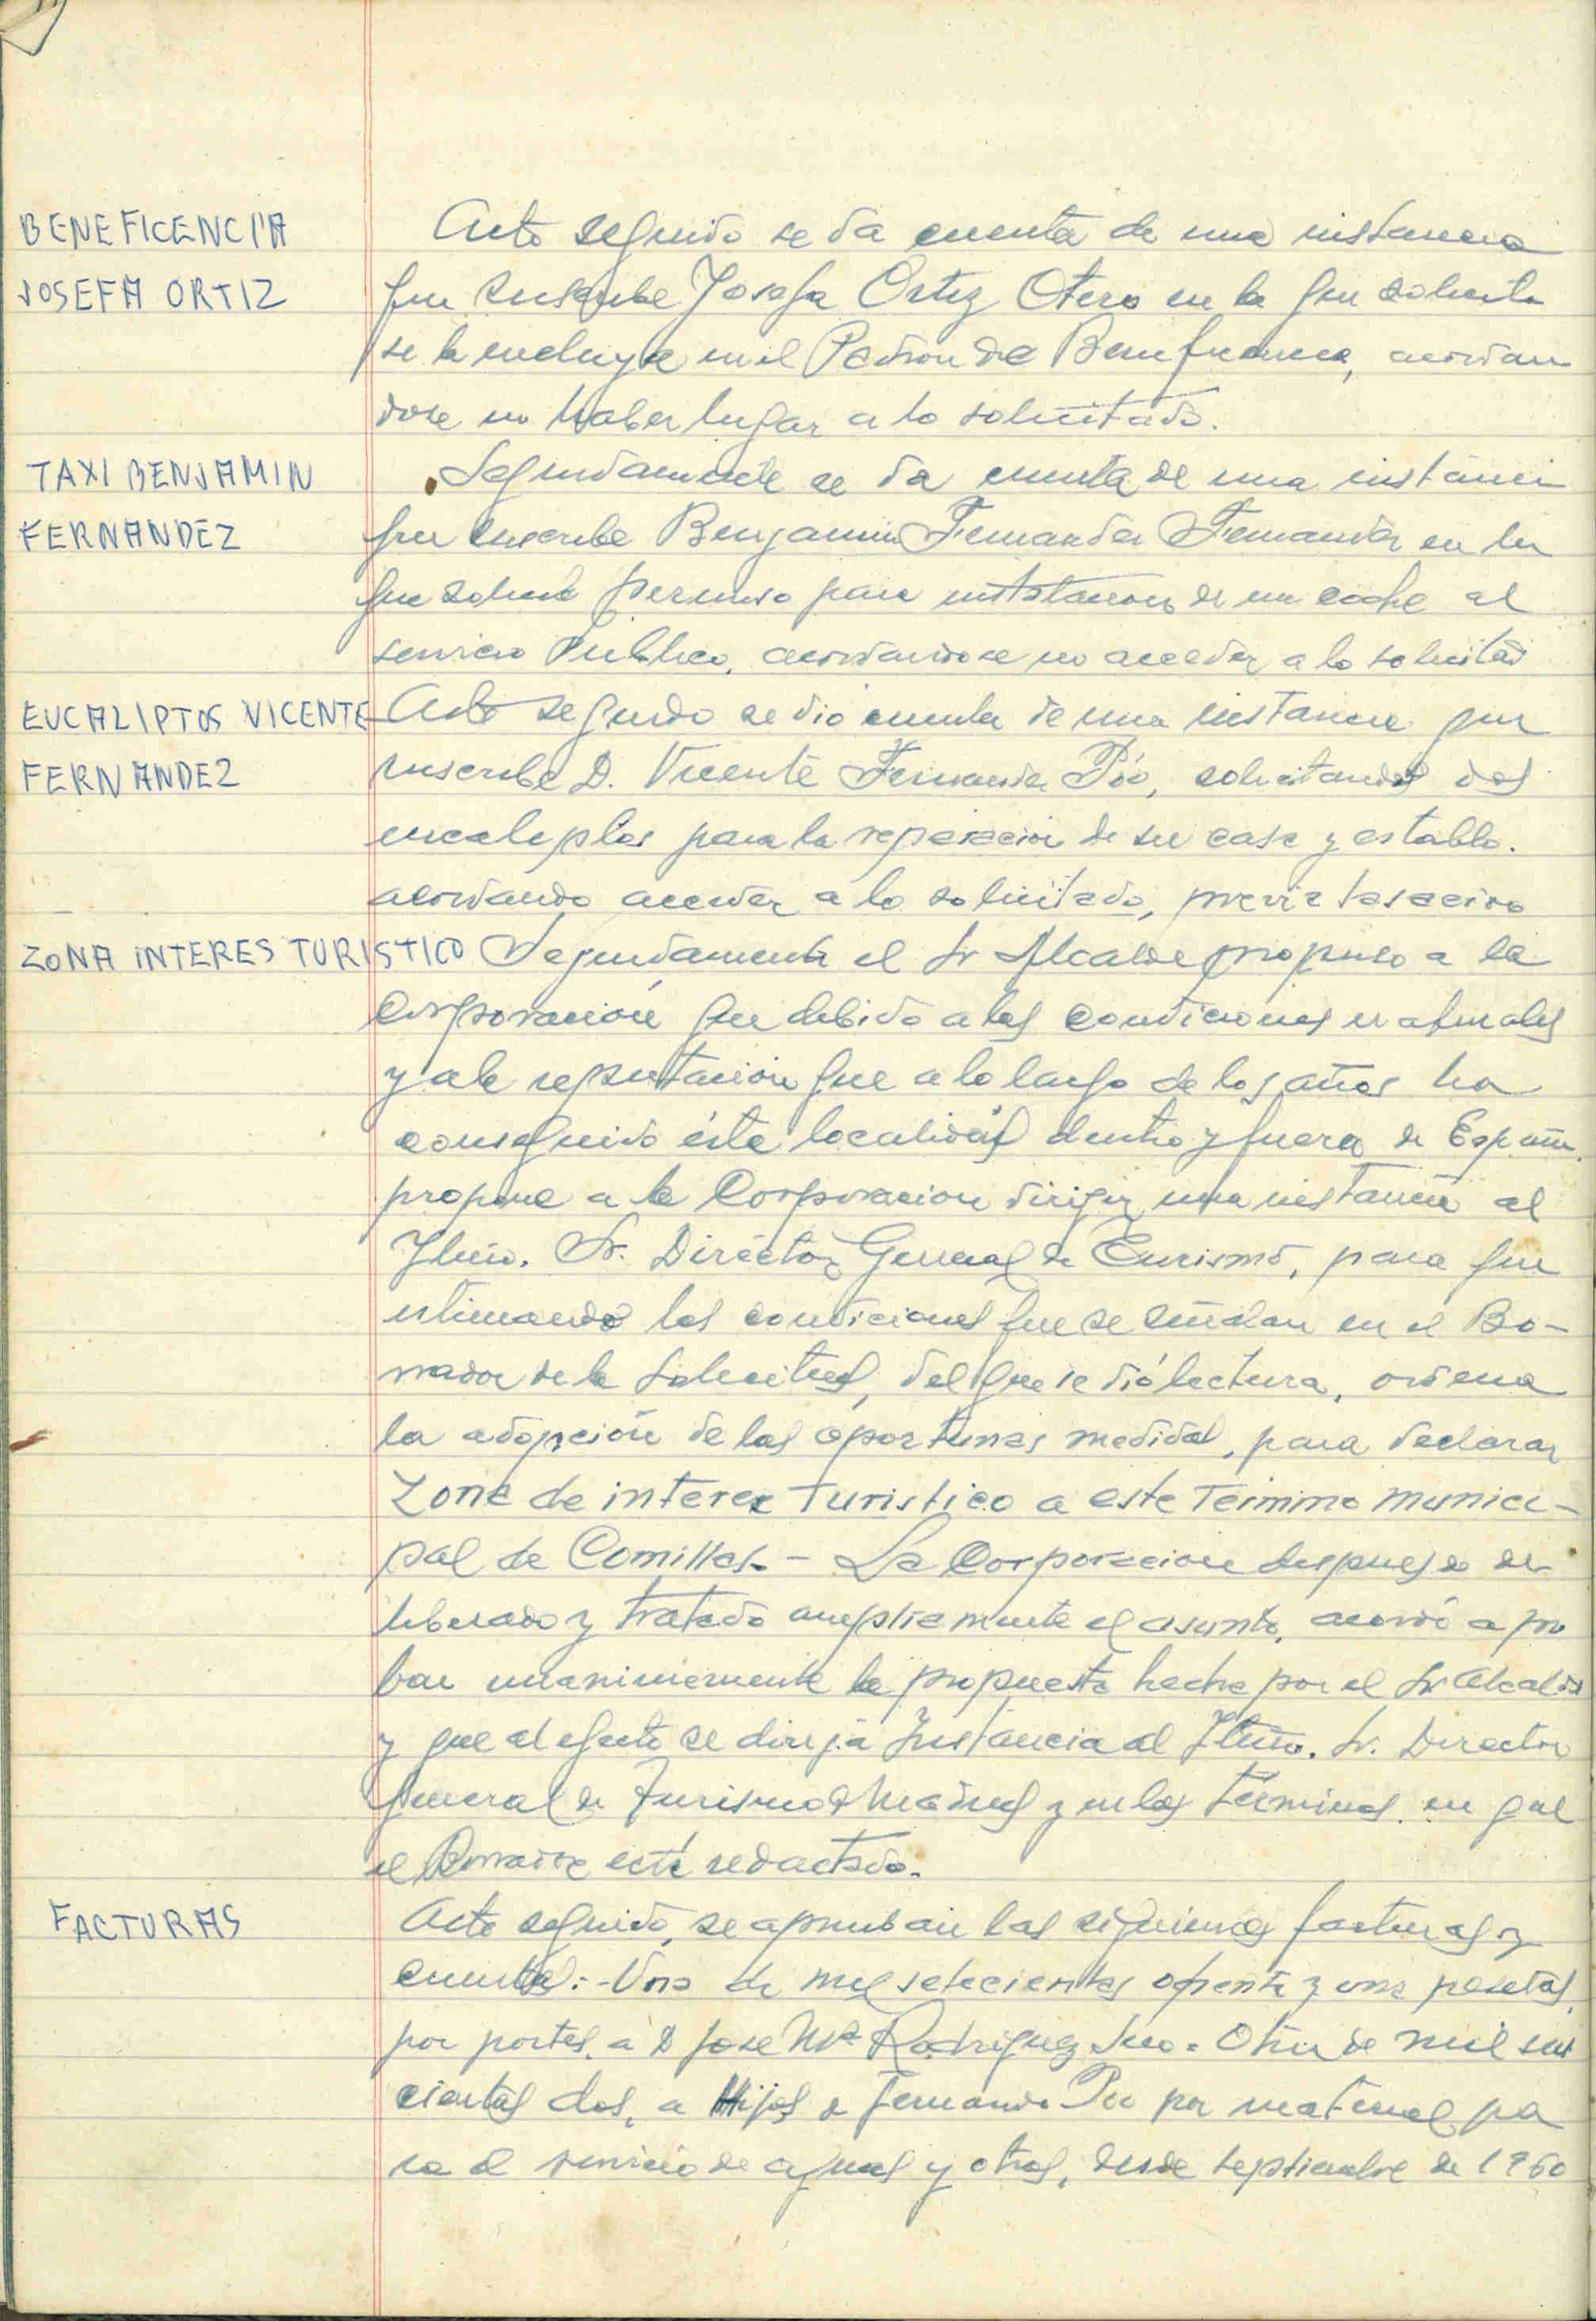 BENEFICENCIA
JOSEFA ORTIZ
Acto seguido se da cuenta de una instancia
que suscribe Josefa Ortiz Otero en la que solicita
se la incluya en el Padron de Beneficencia, acordan
dose no haber lugar a lo solicitado.
TAXI BENJAMIN
FERNANDEZ
Seguidamente se da cuenta de una instancia
que suscribe Benjamin Fernandez Fernandez en la
que solicita permiso para instalacion de un coche al
servicio Publico, acordandose no acceder a lo solicitado
EUCALIPTOS VICENTE
FERNANDEZ
Acto seguido se dio cuenta de una instancia que
suscribe D. Vicente Fernandez Pío, solicitando dos
eucaliptos para la reparacion de su casa y establo.
acordando acceder a lo solicitado, previa tasacion
ZONA INTERES TURISTICO
Seguidamente el Sr Alcalde propuso a la
Corporación que debido a las condiciones naturales
y a la reputación que a lo largo de los años ha
conseguido ésta localidad dentro y fuera de España.
propone a la Corporacion dirigir una instancia al
Iltmo. Sr. Director General de Turismo, para que
estimando las condiciones que se señalan en el Bo-
rrador de la Solicitud, del que se dió lectura, ordena
la adopción de las oportunas medidas, para declarar
Zona de interes Turistico a este Termino munici-
pal de Comillas. - La Corporacion despues de de
liberado y tratado ampliamente el asunto, acordó apro
bar unanimemente la propuesta hecha por el Sr Alcalde
y que al efecto se dirija Instancia al Iltmo. Sr. Director
General de Turismo y en los términos en que
el Borrador está redactado.
FACTURAS
Acto seguido, se aprueban las siguientes facturas y
cuentas: - Una de mil setecientas ochenta y una pesetas,
por portes, a D Jose Mª Rodriguez - Otra de mil seis
cientas dos, a Hijos de Fernando Pio por material pa
ra el servicio de aguas y otros, desde septiembre de 1960